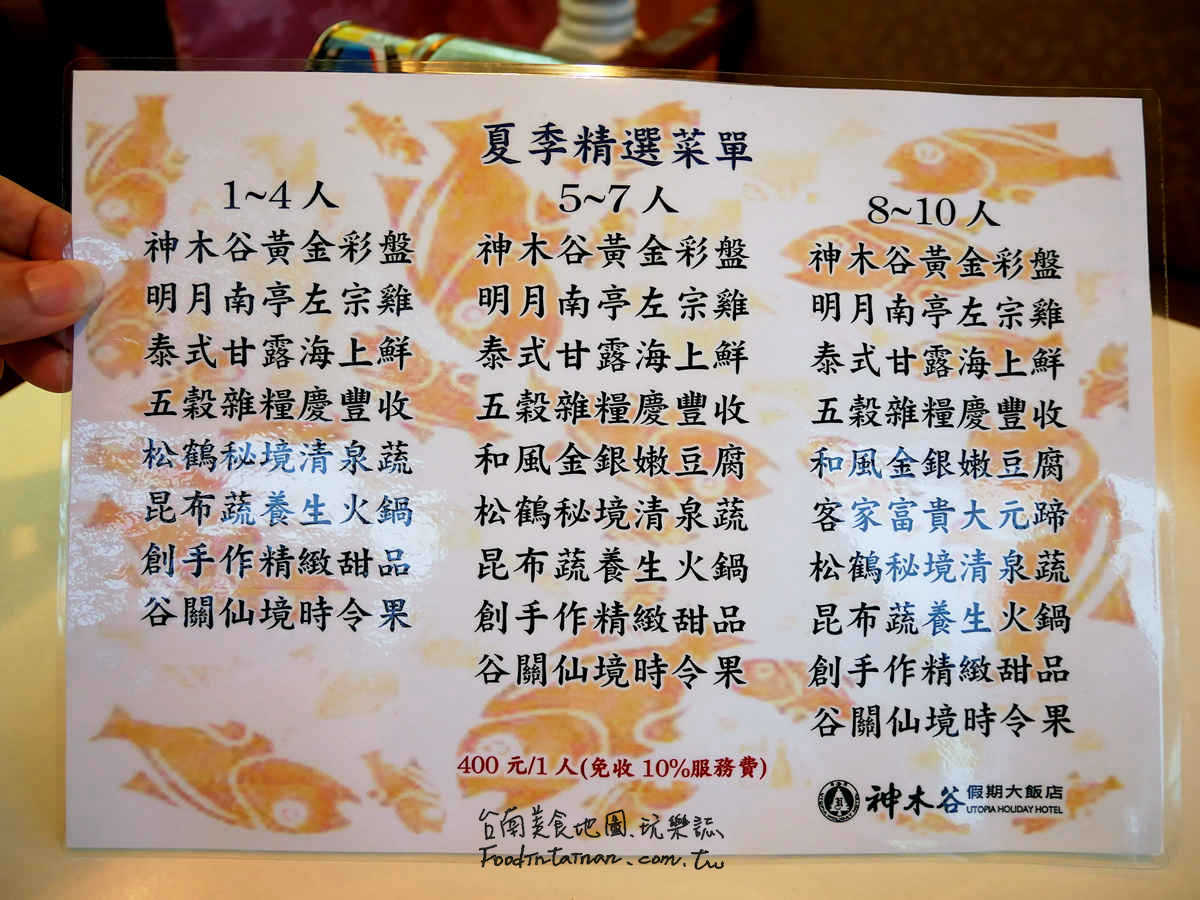 夏季精選菜單
1~4 人
神木谷黃金彩盤
明月南亭左宗雞
泰式甘露海上鮮
五穀雜糧慶豐收
松鶴秘境清泉蔬
昆布蔬養生火鍋
創手作精緻甜品
谷關仙境時令果
5~7 人
神木谷黃金彩盤
明月南亭左宗雞
泰式甘露海上鮮
五穀雜糧慶豐收
和風金銀嫩豆腐
松鶴秘境清泉蔬
昆布蔬養生火鍋
創手作精緻甜品
谷關仙境時令果
8~10 人
神木谷黃金彩盤
明月南亭左宗雞
泰式甘露海上鮮
五穀雜糧慶豐收
和風金銀嫩豆腐
客家富貴大元蹄
松鶴秘境清泉蔬
昆布蔬養生火鍋
創手作精緻甜品
谷關仙境時令果
400 元/1 人(免收 10%服務費)
神木谷 假期大飯店
UTOPIA HOLIDAY HOTEL
台南美食地圖.玩樂誌
FoodInTainan.com.tw